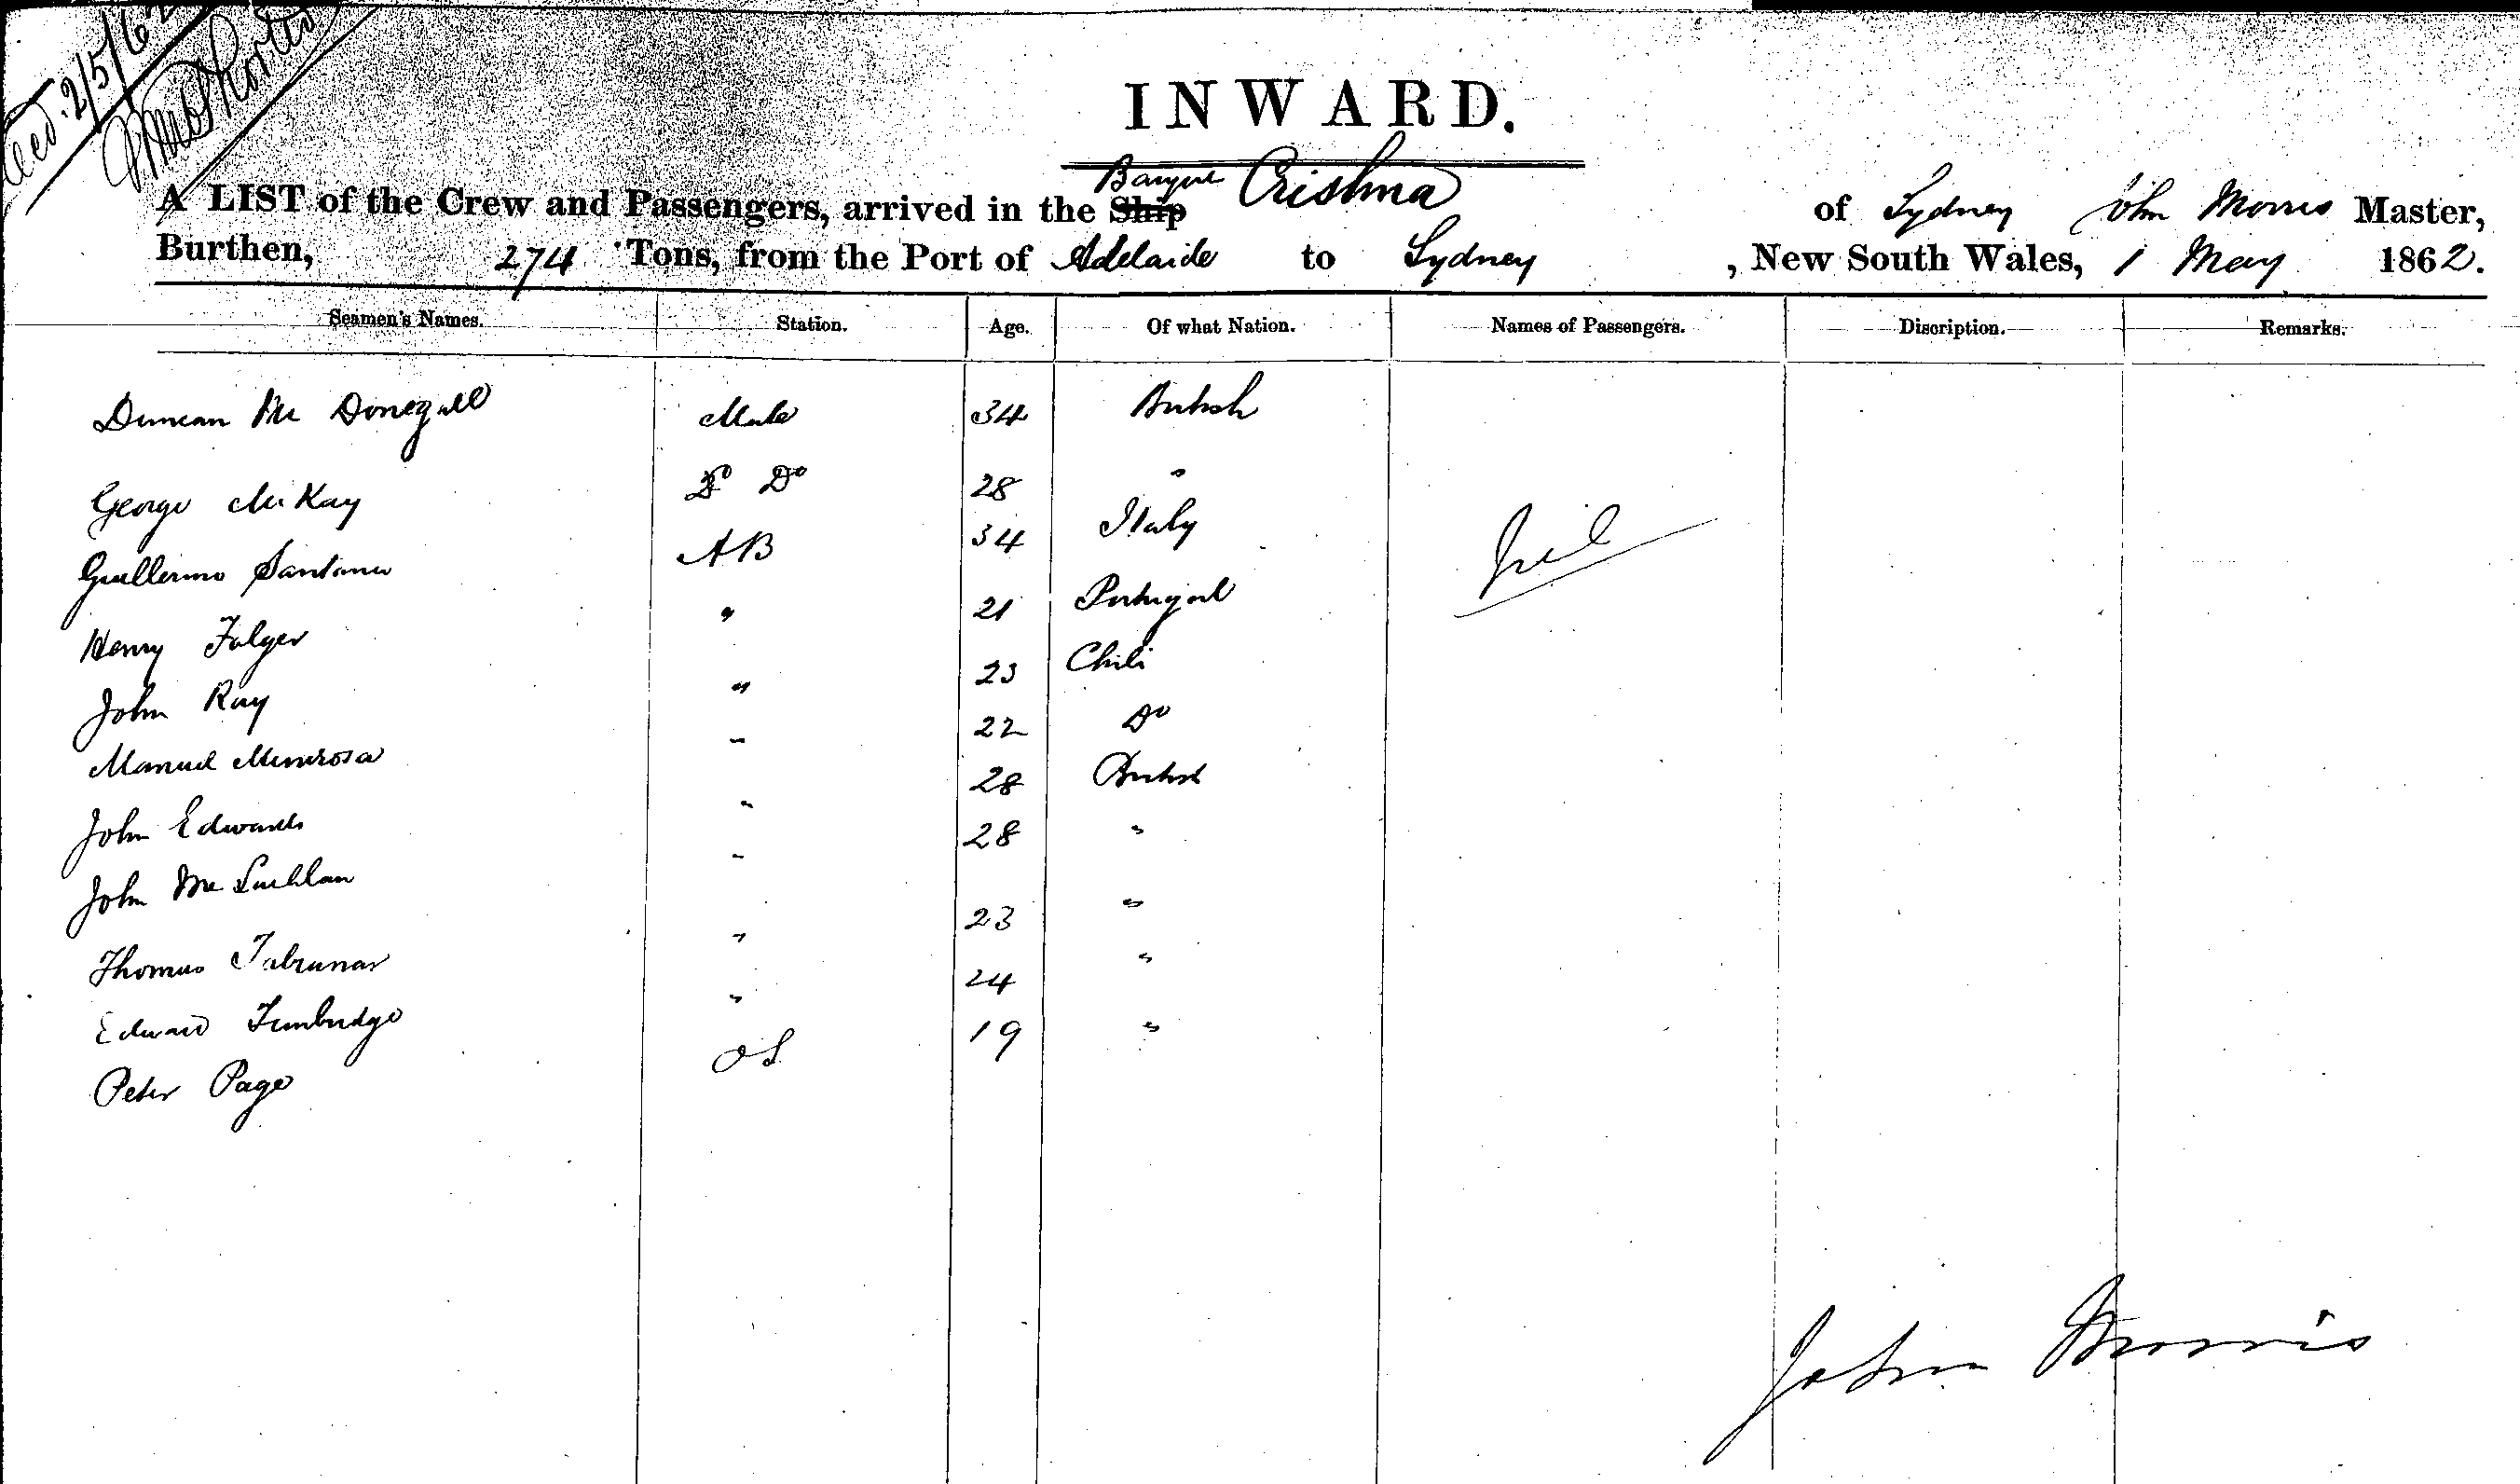 2/5/62
INWARD.
A LIST of the Crew and Passengers, arrived in the Ship Barque Crishna of Sydney John Morris Master,
Burthen, 274 Tons, from the Port of Adelaide to Sydney, New South Wales, 1 May 1862.
Seamen's Names. Station. Age. Of what Nation. Names of Passengers. Discription. Remarks.
Duncan Mc Donegall Mate 34 British
George McKay 2 Do 28 "
Guillermo Santana AB 34 Italy nil
Henry Folger " 21 Portugal
John Ray " 23 Chili
Manuel " 22 Do
John Edwards " 28 British
John McLachlan " 28 "
Thomas " 23 "
Edward Timbridge " 24 "
Peter Page OS 19 "
John Morris